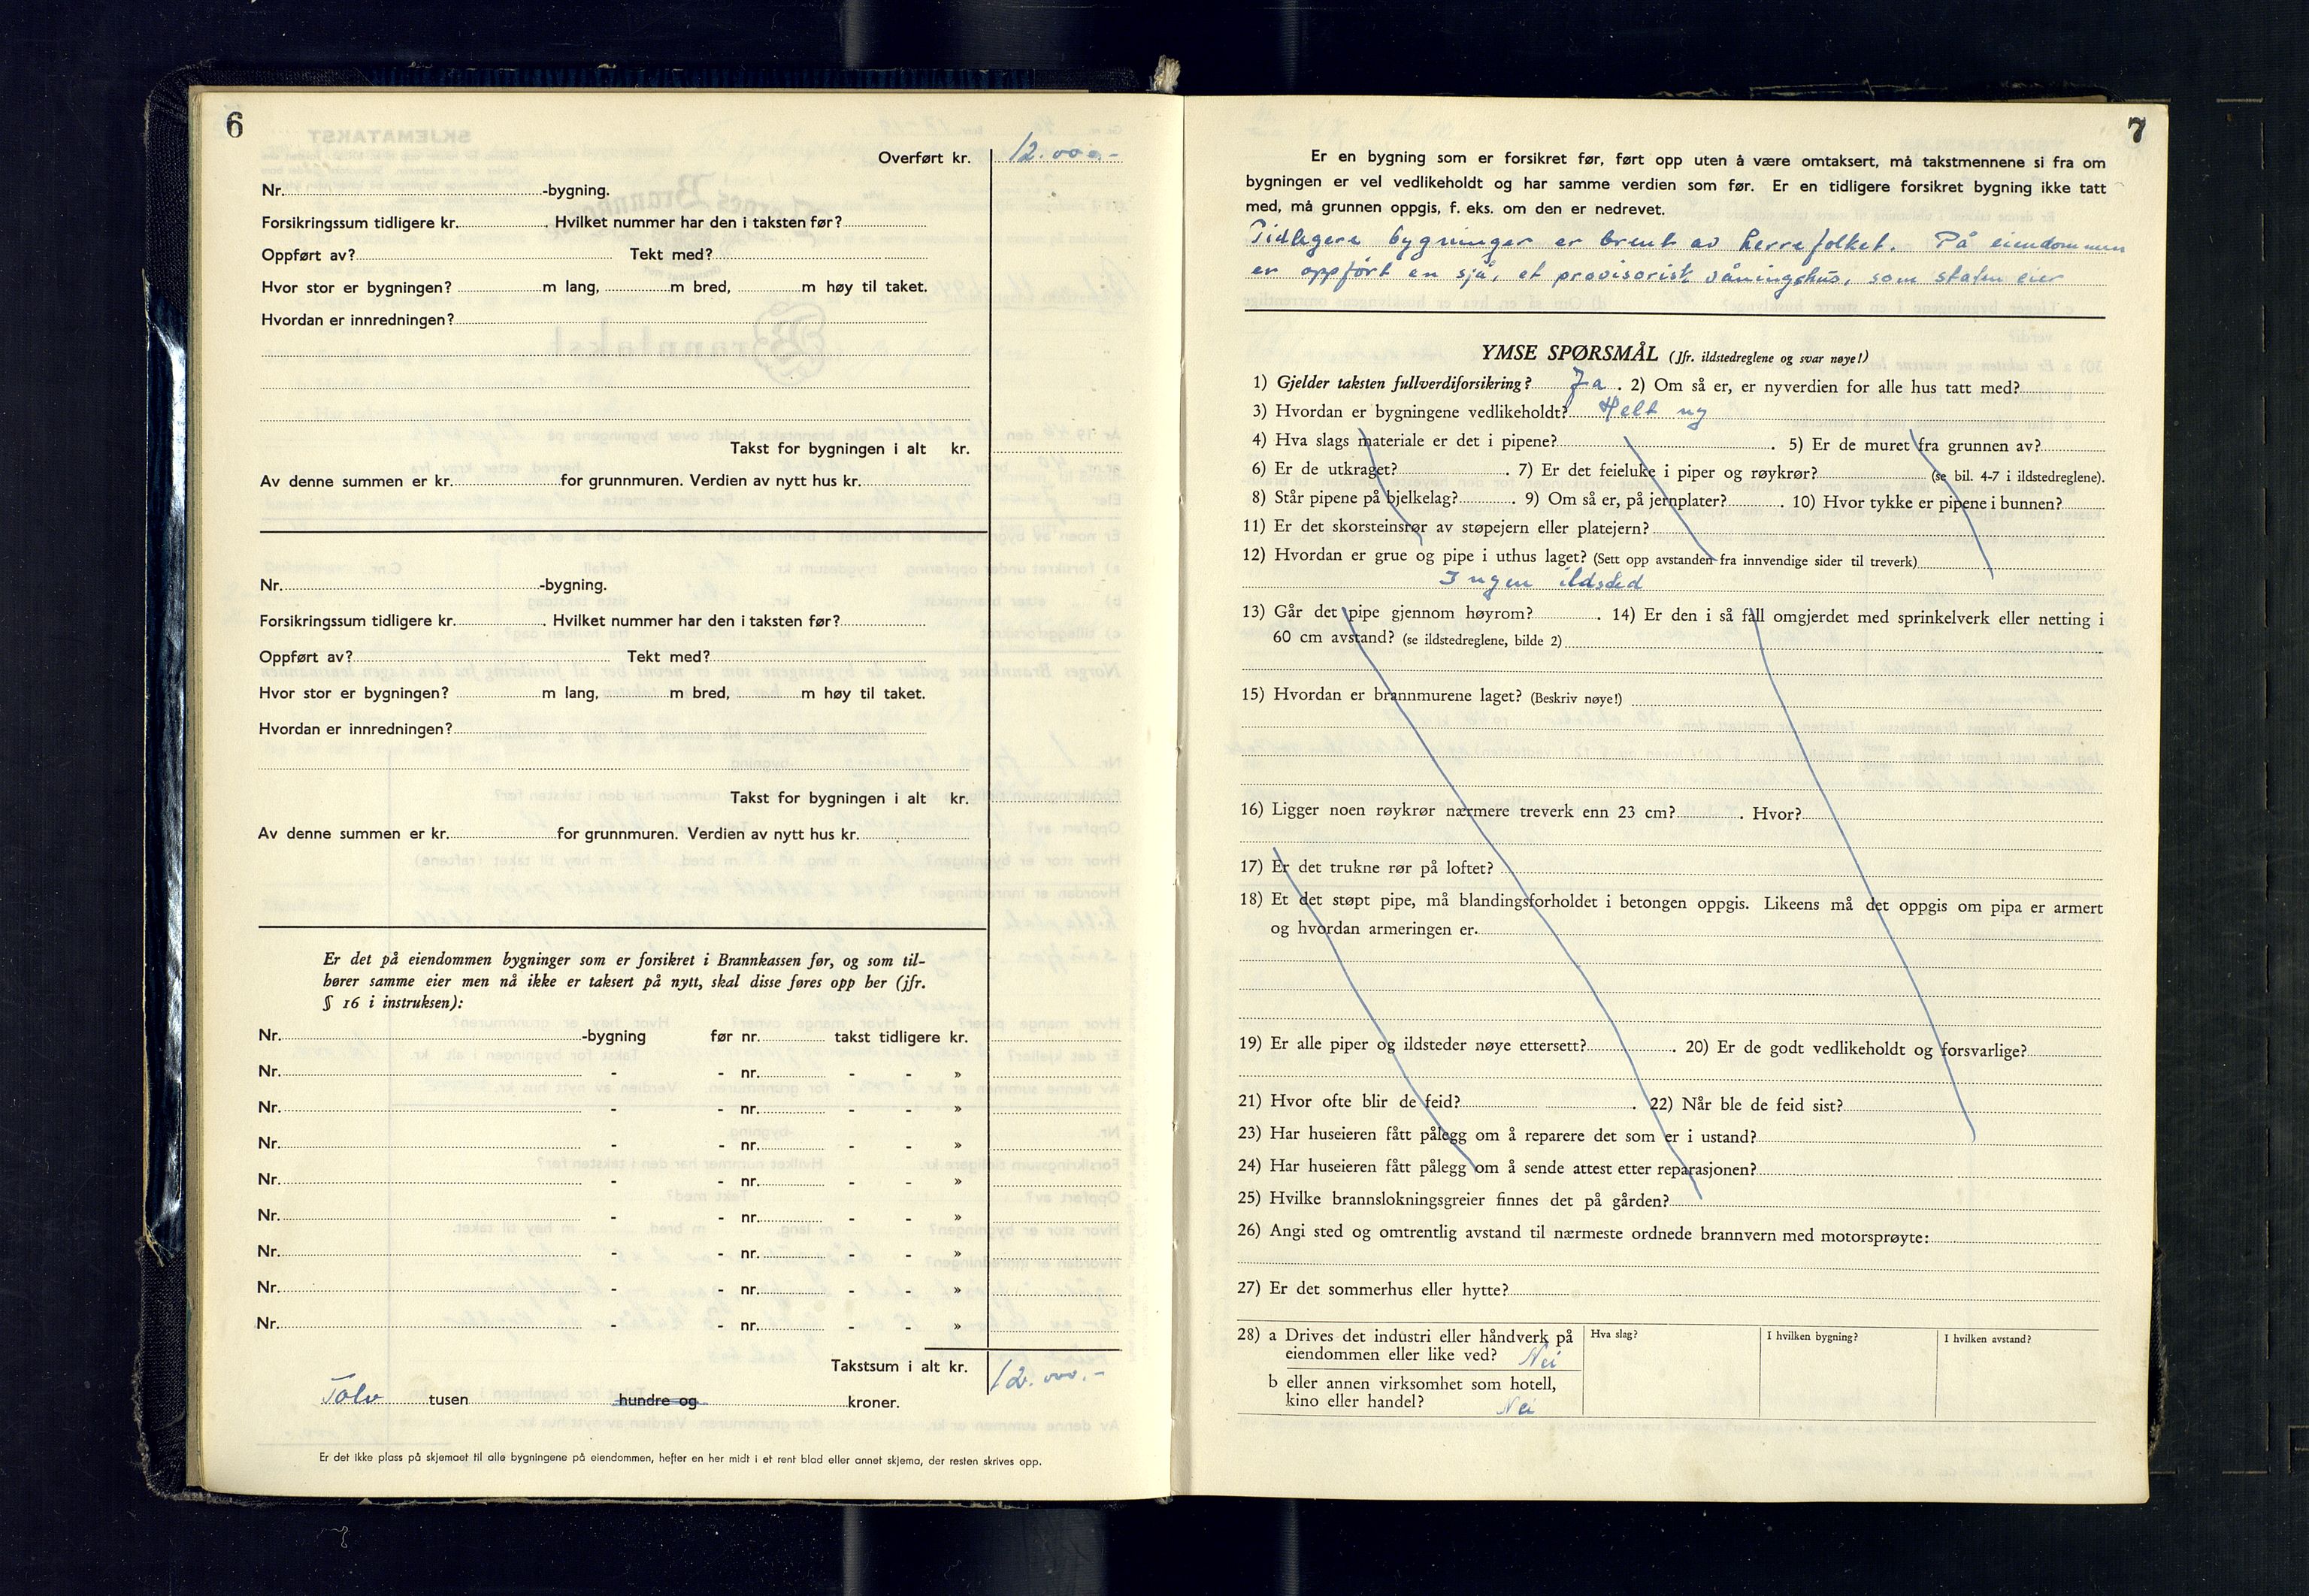 6
Overført kr. 12.000.-
Nr. -bygning.
Forsikringssum tidligere kr. . Hvilket nummer har den i taksten før?
Oppført av? Tekt med?
Hvor stor er bygningen? m lang, m bred, m høy til taket.
Hvordan er innredningen?
Takst for bygningen i alt kr.
Av denne summen er kr. for grunnmuren. Verdien av nytt hus kr.
Nr. -bygning.
Forsikringssum tidligere kr. . Hvilket nummer har den i taksten før?
Oppført av? Tekt med?
Hvor stor er bygningen? m lang, m bred, m høy til taket.
Hvordan er innredningen?
Takst for bygningen i alt kr.
Av denne summen er kr. for grunnmuren. Verdien av nytt hus kr.
Er det på eiendommen bygninger som er forsikret i Brannkassen før, og som til-
hører samme eier men nå ikke er taksert på nytt, skal disse føres opp her (jfr.
§ 16 i instruksen):
Nr. -bygning før nr. takst tidligere kr.
Nr. - - nr. - - »
Nr. - - nr. - - »
Nr. - - nr. - - »
Nr. - - nr. - - »
Nr. - - nr. - - »
Nr. - - nr. - - »
Nr. - - nr. - - »
Nr. - - nr. - - »
Takstsum i alt kr. 12.000.-
Tolv tusen hundre og kroner.
Er det ikke plass på skjemaet til alle bygningene på eiendommen, hefter en her midt i et rent blad eller annet skjema, der resten skrives opp.
7
Er en bygning som er forsikret før, ført opp uten å være omtaksert, må takstmennene si fra om
bygningen er vel vedlikeholdt og har samme verdien som før. Er en tidligere forsikret bygning ikke tatt
med, må grunnen oppgis, f. eks. om den er nedrevet.
Tidligere bygninger er brent av herrefolket. På eiendommen
er oppført en sjå, et provisorisk våningshus, som staten eier
YMSE SPØRSMÅL (Jfr. ildstedreglene og svar nøye!)
1) Gjelder taksten fullverdiforsikring? Ja . 2) Om så er, er nyverdien for alle hus tatt med?
3) Hvordan er bygningene vedlikeholdt? Helt ny
4) Hva slags materiale er det i pipene? . 5) Er de muret fra grunnen av?
6) Er de utkraget? . 7) Er det feieluke i piper og røykrør? (se bil. 4-7 i ildstedreglene).
8) Står pipene på bjelkelag? . 9) Om så er, på jernplater? . 10) Hvor tykke er pipene i bunnen?
11) Er det skorsteinsrør av støpejern eller platejern?
12) Hvordan er grue og pipe i uthus laget? (Sett opp avstanden fra innvendige sider til treverk)
Ingen ildsted
13) Går det pipe gjennom høyrom? . 14) Er den i så fall omgjerdet med sprinkelverk eller netting i
60 cm avstand? (se ildstedreglene, bilde 2)
15) Hvordan er brannmurene laget? (Beskriv nøye!)
16) Ligger noen røykrør nærmere treverk enn 23 cm? . Hvor?
17) Er det trukne rør på loftet?
18) Et det støpt pipe, må blandingsforholdet i betongen oppgis. Likeens må det oppgis om pipa er armert
og hvordan armeringen er.
19) Er alle piper og ildsteder nøye ettersett? . 20) Er de godt vedlikeholdt og forsvarlige?
21) Hvor ofte blir de feid? . 22) Når ble de feid sist?
23) Har huseieren fått pålegg om å reparere det som er i ustand?
24) Har huseieren fått pålegg om å sende attest etter reparasjonen?
25) Hvilke brannslokningsgreier finnes det på gården?
26) Angi sted og omtrentlig avstand til nærmeste ordnede brannvern med motorsprøyte:
27) Er det sommerhus eller hytte?
28) a Drives det industri eller håndverk på Hva slag? I hvilken bygning? I hvilken avstand?
eiendommen eller like ved? Nei
b eller annen virksomhet som hotell,
kino eller handel? Nei